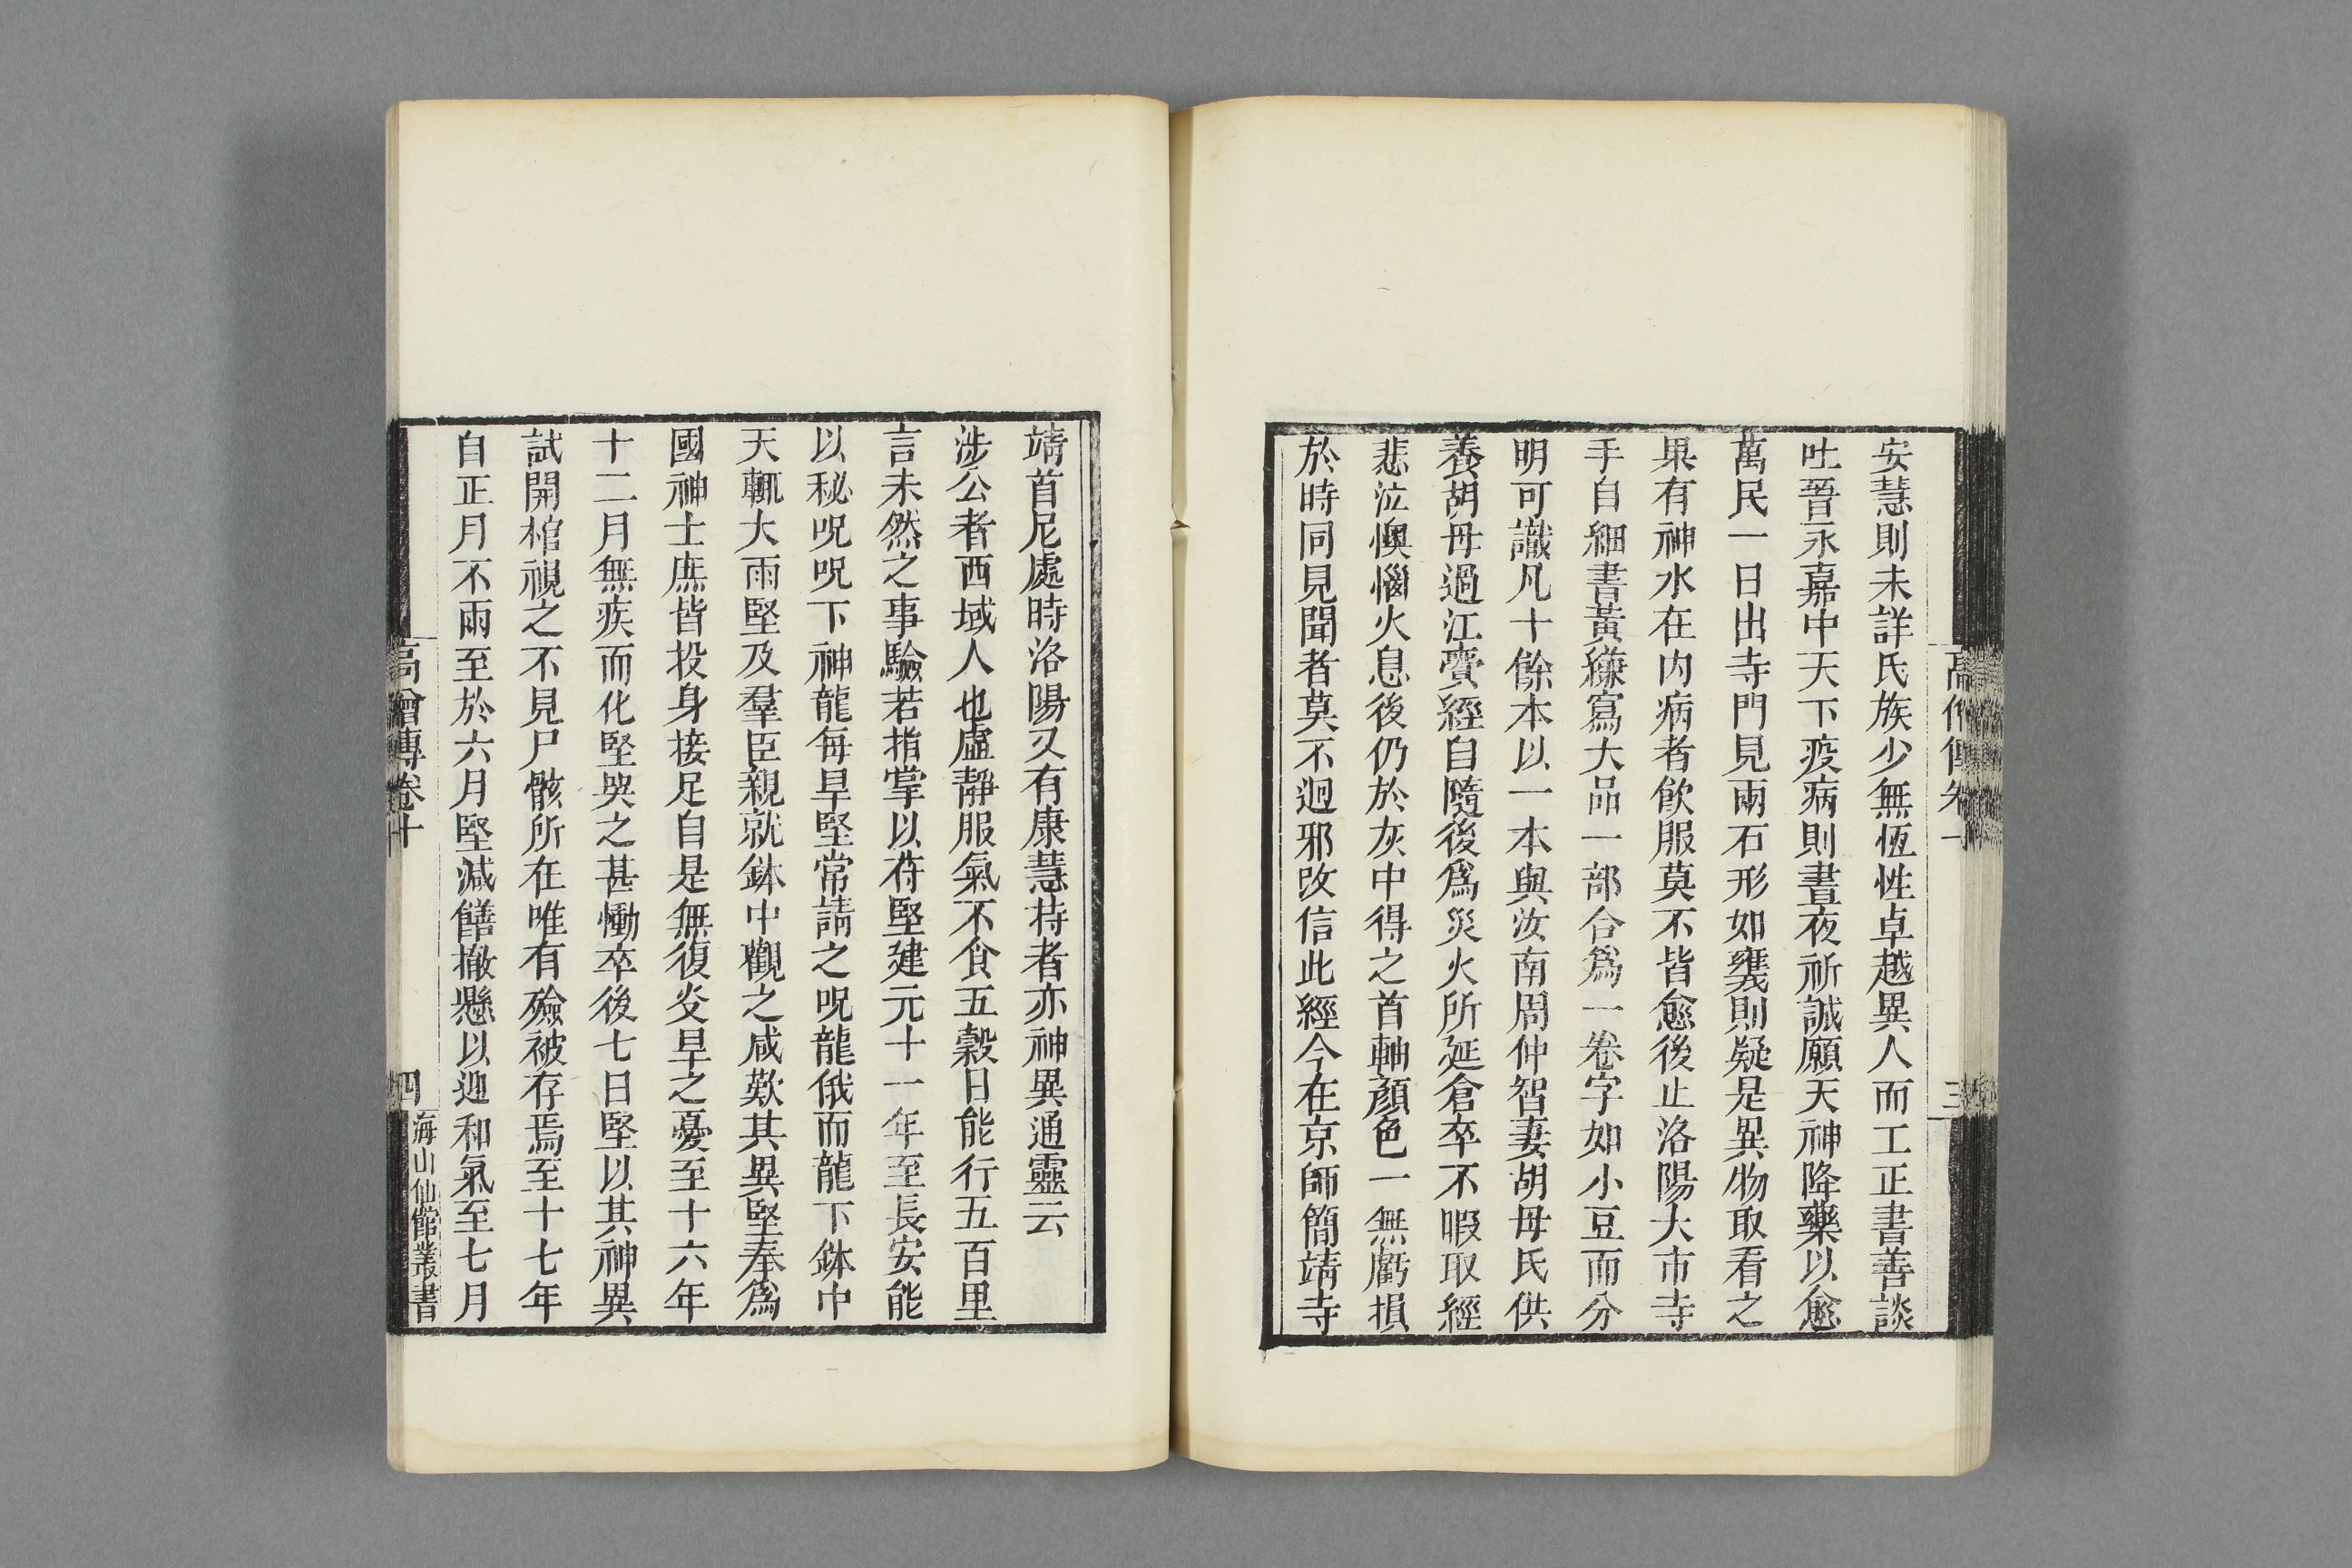 安慧則未詳氏族少無恆性卓越異人而工正書善談
吐晉永嘉中天下疫病則晝夜祈誠願天神降藥以愈
萬民一日出寺門見兩石形如甕則疑是異物取看之
果有神水在内病者飲服莫不皆愈後止洛陽大市寺
手自細書黃縑寫大品一部合爲一卷字如小豆而分
明可識凡十餘本以一本與汝南周仲智妻胡母氏供
養胡母過江賷經自隨後爲災火所延倉卒不暇取經
悲泣懊惱火息後仍於灰中得之首軸顏色一無虧損
於時同見聞者莫不迴邪改信此經今在京師簡靖寺
靖首尼處時洛陽又有康慧持者亦神異通靈云
涉公者西域人也虛靜服氣不食五穀日能行五百里
言未然之事驗若指掌以苻堅建元十一年至長安能
以秘呪呪下神龍每旱堅常請之呪龍俄而龍下鉢中
天輒大雨堅及羣臣親就鉢中觀之咸歎其異堅奉爲
國神士庶皆投身接足自是無復炎旱之憂至十六年
十二月無疾而化堅哭之甚慟卒後七日堅以其神異
試開棺視之不見尸骸所在唯有殮被存焉至十七年
自正月不雨至於六月堅減饍撤懸以迎和氣至七月
高僧傳卷十
四
海山仙館叢書